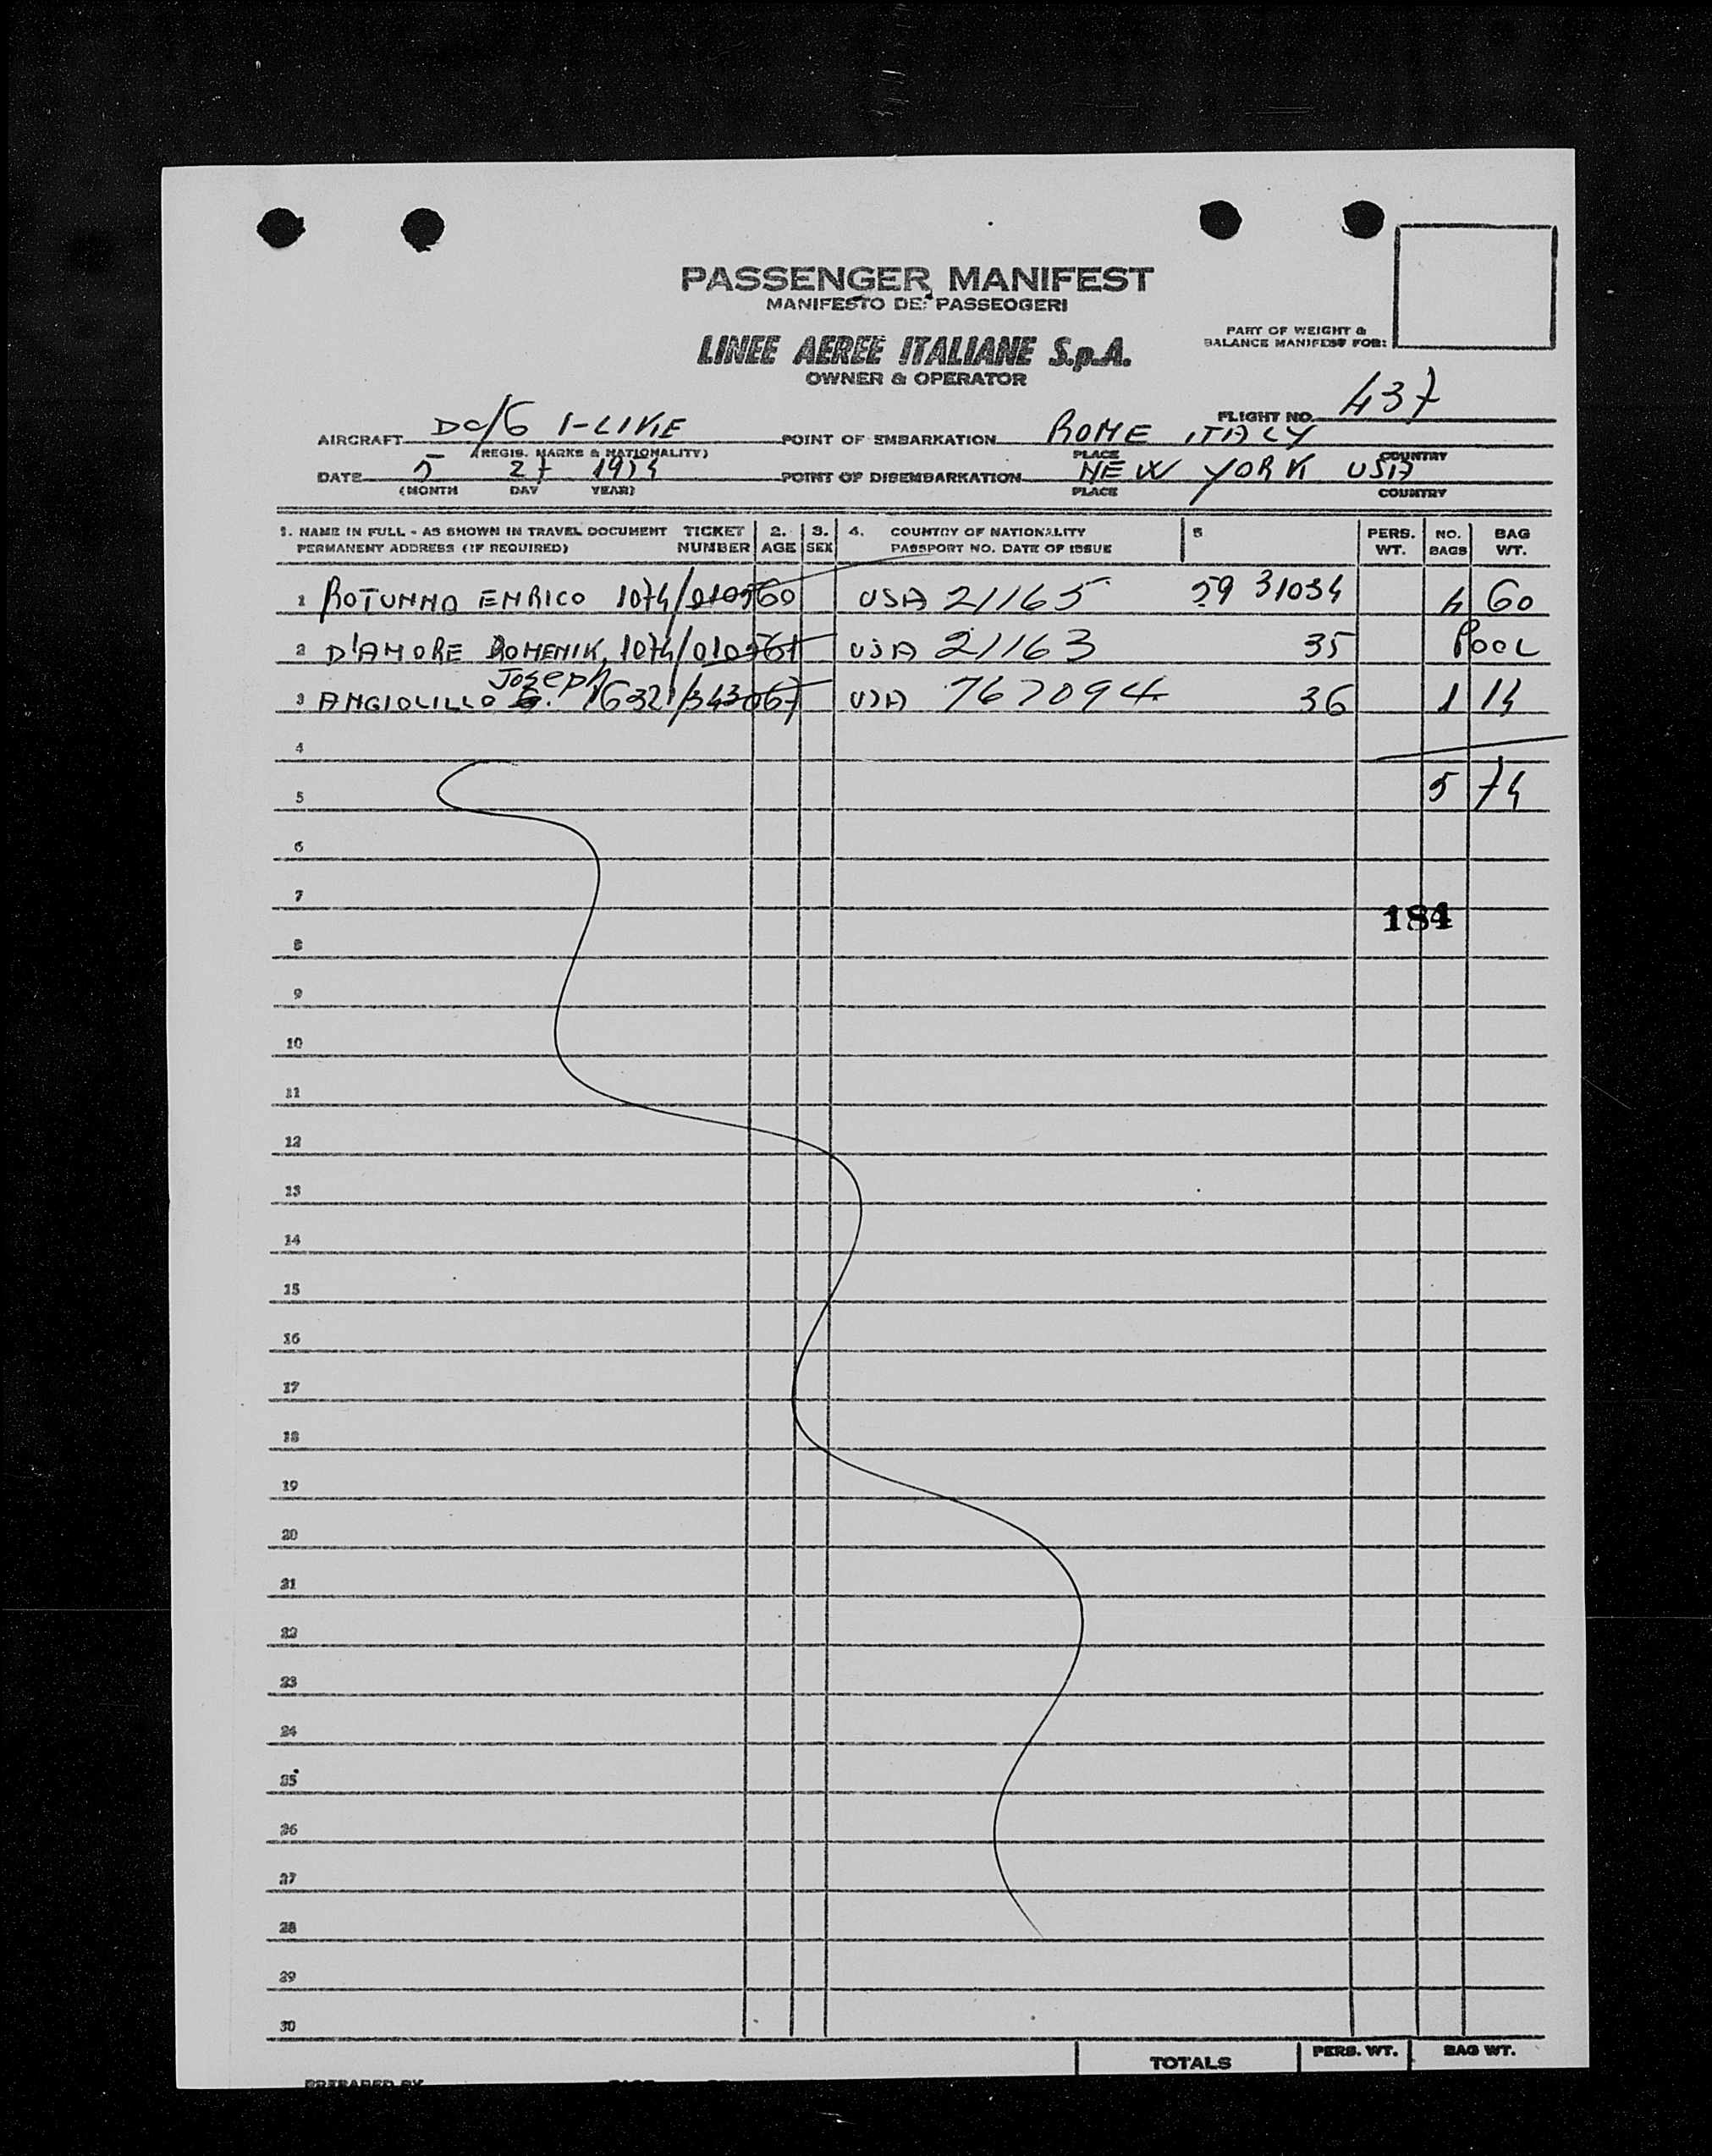 PASSENGER MANIFEST
MANIFESTO DEI PASSEOGERI
LINEE AEREE ITALIANE S.p.A.
OWNER & OPERATOR
PART OF WEIGHT &
BALANCE MANIFEST FOR:
FLIGHT NO. 437
AIRCRAFT DC/6 I-LIKE POINT OF EMBARKATION ROME ITALY
(REGIS. MARKS & NATIONALITY) PLACE COUNTRY
DATE 5 27 1954 POINT OF DISEMBARKATION NEW YORK USA
(MONTH DAY YEAR) PLACE COUNTRY
1. NAME IN FULL - AS SHOWN IN TRAVEL DOCUMENT TICKET 2. 3. 4. COUNTRY OF NATIONALITY 5 PERS. NO. BAG
PERMANENT ADDRESS (IF REQUIRED) NUMBER AGE SEX PASSPORT NO. DATE OF ISSUE WT. BAGS WT.
1 ROTUNNO ENRICO 1074/010560 USA 21165 59 31034 4 60
2 D'AMORE DOMENIK, 1074/010561 USA 21163 35 POOL
Joseph
3 ANGIOLILLO G. 16321/343067 USA 767094 36 1 14
4
5 5 74
6
7
184
8
9
10
11
12
13
14
15
16
17
18
19
20
21
22
23
24
25
26
27
28
29
30
TOTALS PERS. WT. BAG WT.
PREPARED BY